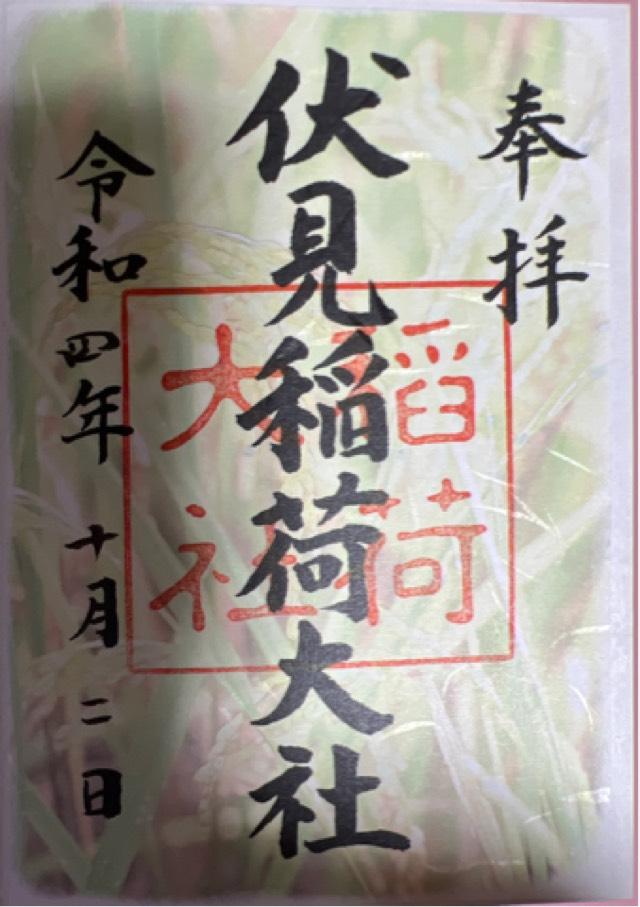 奉拝
伏見稲荷大社
稲荷
大社
令和四年十月二日